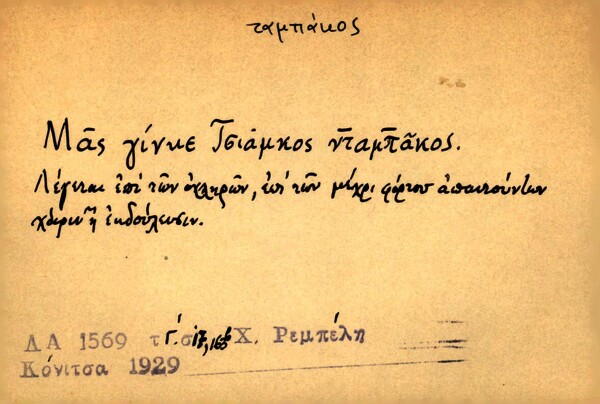 ταμπάκος
Μᾶς γίνκε Τσιάμκος νταμπᾶκος.
Λέγεται ἐπὶ τῶν ὀχληρῶν, ἐπὶ τῶν μέχρι φόρτου ἀπαιτούντων
χάριν ἢ ἐκδούλευσιν.
ΛΑ 1569 τ Γ΄. σ 17, Χ. Ρεμπέλη
Κόνιτσα 1929